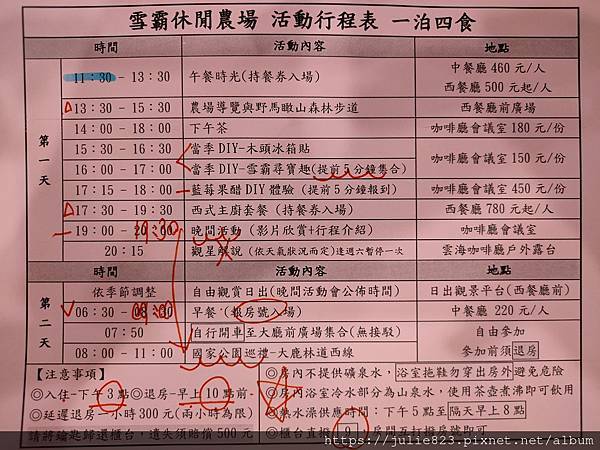 雪霸休閒農場 活動行程表 一泊四食
時間 活動內容 地點
第一天
11:30 - 13:30 午餐時光(持餐券入場) 中餐廳 460 元/人
西餐廳 500 元起/人
13:30 - 15:30 農場導覽與野馬瞰山森林步道 西餐廳前廣場
14:00 - 18:00 下午茶 咖啡廳會議室 180 元/份
15:30 - 16:30 當季 DIY-木頭冰箱貼 咖啡廳會議室 150 元/份
16:00 - 17:00 當季 DIY-雪霸尋寶趣(提前 5 分鐘集合)
17:15 - 18:00 藍莓果醋 DIY 體驗 (提前 5 分鐘報到) 咖啡廳會議室 450 元/份
17:30 - 19:30 西式主廚套餐 (持餐券入場) 西餐廳 780 元起/人
19:00 - 20:00 19:30 晚間活動 (影片欣賞+行程介紹) 咖啡廳會議室
20:15 觀星解說 (依天氣狀況而定)逢週六暫停一次 雲海咖啡廳戶外露台
第二天
時間 活動內容 地點
依季節調整 自由觀賞日出(晚間活動會公佈時間) 日出觀景平台(西餐廳前)
06:30 - 08:30 早餐 (報房號入場) 中餐廳 220 元/人
07:50 自行開車至大廳前廣場集合(無接駁) 自由參加
08:00 - 11:00 國家公園巡禮-大鹿林道西線 參加前須退房
【注意事項】
◎入住-下午 3 點◎退房-早上 10 點前。
◎延遲退房一小時 300 元(兩小時為限)
請將鑰匙歸還櫃台，遺失須賠償 500 元
◎房內不提供礦泉水，浴室拖鞋勿穿出房外避免危險
◎房內浴室冷水部分為山泉水，使用茶壺煮沸即可飲用
◎熱水澡供應時間：下午 5 點至隔天早上 8 點
◎櫃台直撥 9，房間互打撥房號即可
https://julie823.pixnet.net/album